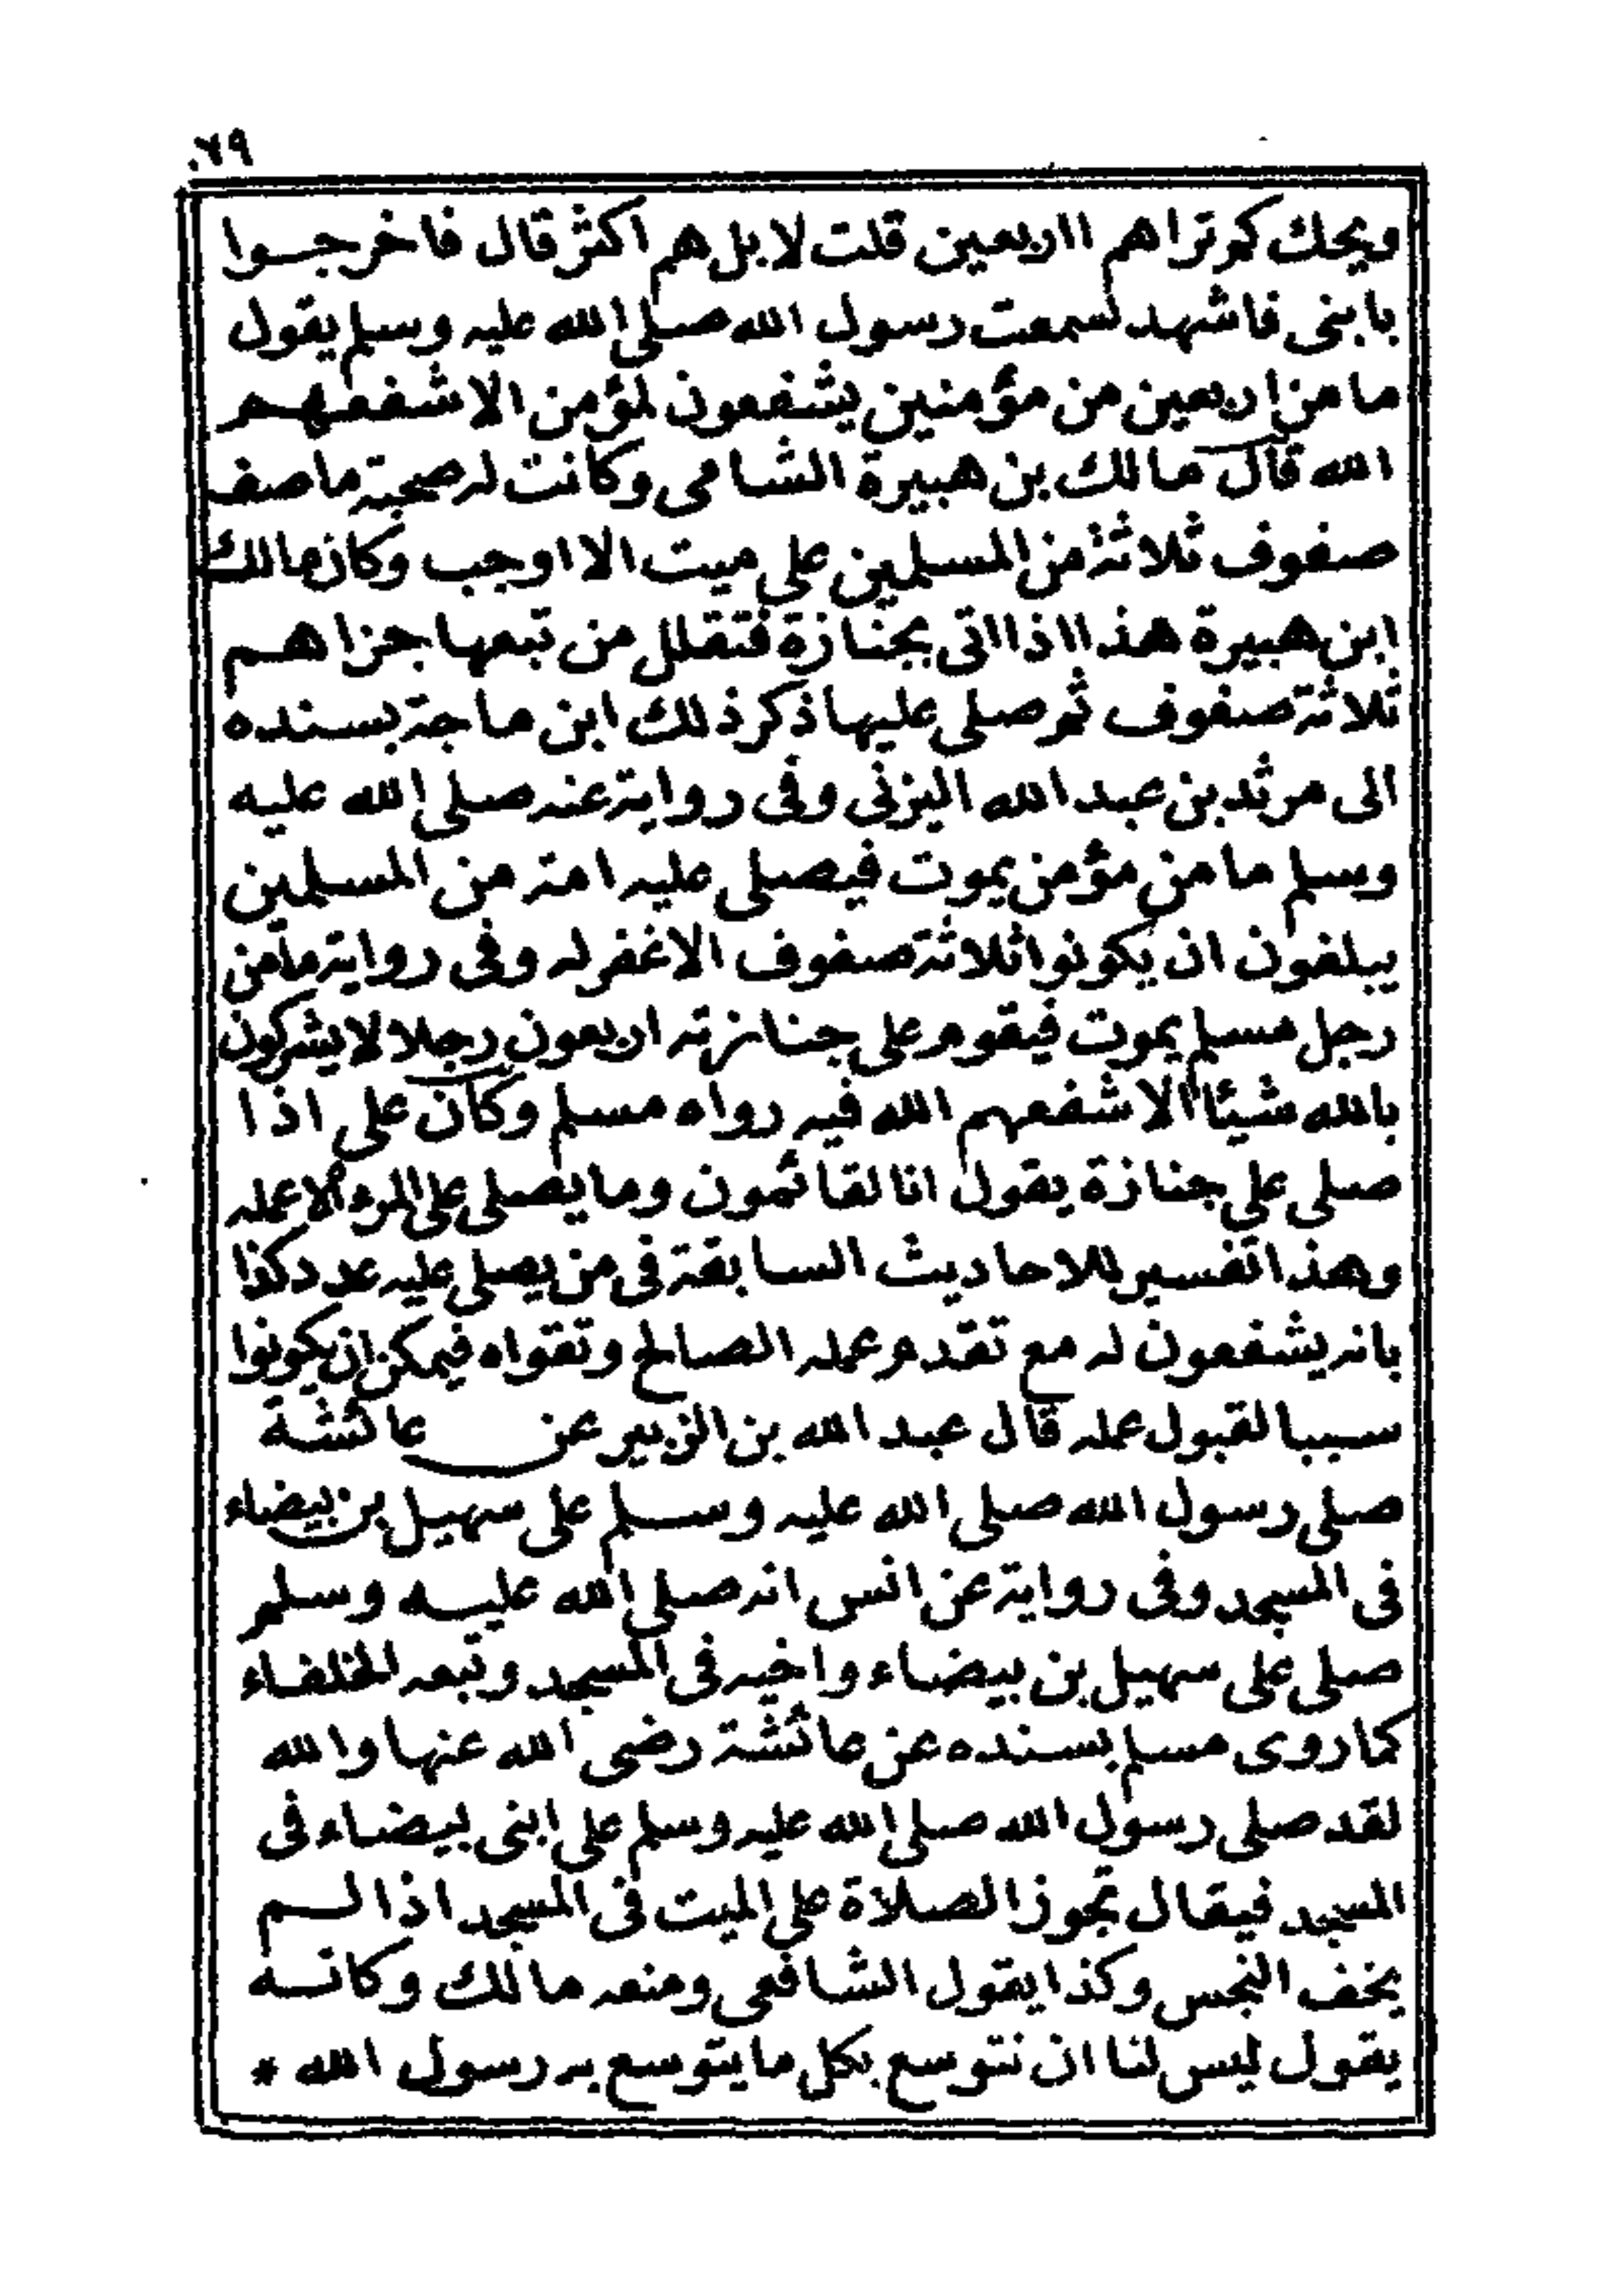 ٧٩
ويحك كم تراهم ااربعين قلت لا بل هم اكثر قال فاخرجوا
بابنى فاشهد لسمعت رسول الله صلى الله عليه وسلم يقول
ما من اربعين من مؤمنين يشفعون لمؤمن الا شفعهم
الله قال مالك بن هبيرة الشامى وكانت له صحبة ما صف
صفوف ثلاثة من المسلمين على ميت الا اوجب وكان مالك
ابن هبيرة هذا اذا اتى بجنازة فتقلل من تبعها جزاهم
ثلاثة صفوف ثم صلى عليها ذكر ذلك ابن ماجة بسنده
الى مرثد بن عبد الله اليزنى وفى رواية عنه صلى الله عليه
وسلم ما من مؤمن يموت فيصلى عليه امة من المسلمين
يبلغون ان يكونوا ثلاثة صفوف الا غفر له وفى رواية ما من
رجل مسلم يموت فيقوم على جنازته اربعون رجلا لا يشركون
بالله شيئا الا شفعهم الله فيه رواه مسلم وكان على اذا
صلى على جنازة يقول انا لقائمون وما يصلى على المرء الا عمله
وهذا تفسير للاحاديث السابقة فى من يصلى عليه عدد كذا
بانه يشفعون له مع تقدم عمله الصالح وتقواه فيمكن ان يكونوا
سببا لقبول عمله قال عبد الله بن الزبير عن عائشة
صلى رسول الله صلى الله عليه وسلم على سهيل بن بيضاء
فى المسجد وفى رواية عن انس انه صلى الله عليه وسلم
صلى على سهيل بن بيضاء واخيه فى المسجد وتبعه الخلفاء
كما روى مسلم بسنده عن عائشة رضى الله عنها والله
لقد صلى رسول الله صلى الله عليه وسلم على ابنى بيضاء فى
المسجد فيقال تجوز الصلاة على الميت فى المسجد اذا لم
يخف النجس وكذا يقول الشافعى ومنعه مالك وكانه
يقول ليس لنا ان نتوسع بكل ما يتوسع به رسول الله *